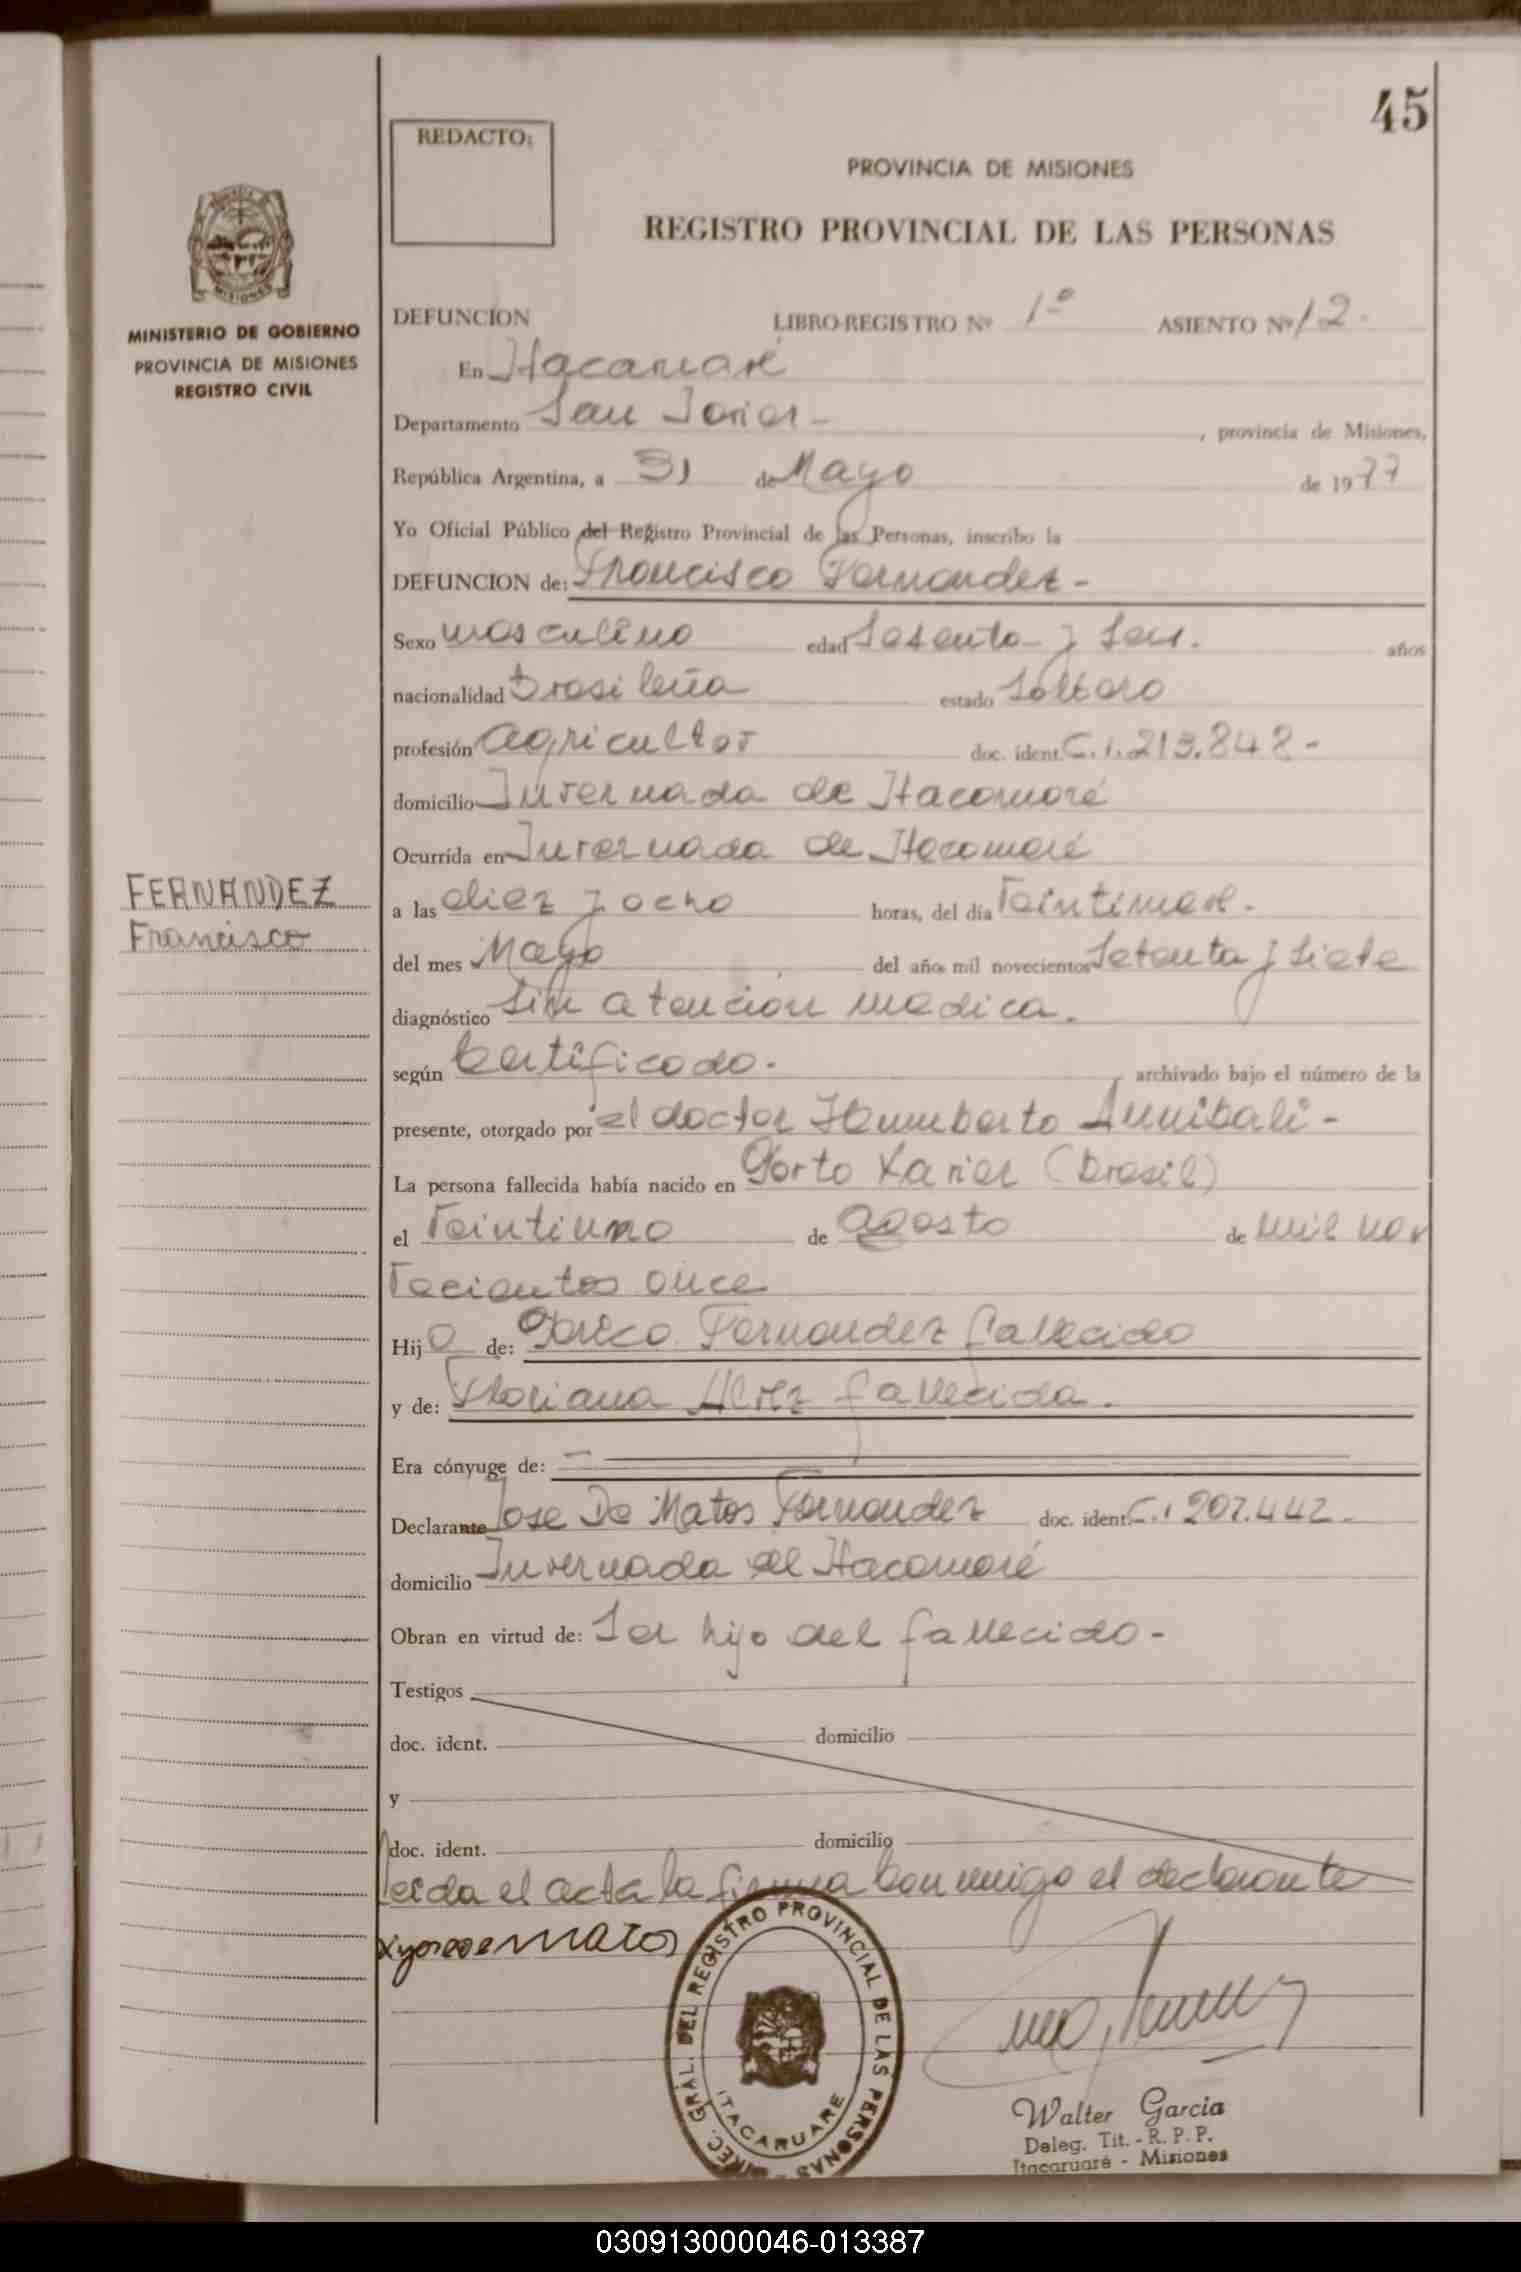 45
REDACTO:
PROVINCIA DE MISIONES
REGISTRO PROVINCIAL DE LAS PERSONAS
MISIONES
MINISTERIO DE GOBIERNO
PROVINCIA DE MISIONES
REGISTRO CIVIL
DEFUNCION LIBRO-REGISTRO Nº 1º ASIENTO Nº 12.
En Itacaruaré
Departamento San Javier - , provincia de Misiones,
República Argentina, a 31 de Mayo de 1977
Yo Oficial Público del Registro Provincial de las Personas, inscribo la
DEFUNCION de: Francisco Fernandez -
Sexo masculino edad Sesenta y Seis. años
nacionalidad brasileña estado Soltero
profesión agricultor doc. ident. C.I. 213.848 -
domicilio Invernada de Itacaruaré
Ocurrida en Invernada de Itacaruaré
FERNANDEZ
Francisco
a las diez y ocho horas, del día Veintinueve.
del mes Mayo del año mil novecientos Setenta y Siete
diagnóstico Sin atención medica.
según Certificado. , archivado bajo el número de la
presente, otorgado por el doctor Humberto Annibali -
La persona fallecida había nacido en Porto Xavier (Brasil)
el Veintiuno de agosto de mil no
vecientos once
Hij o de: Fernandez fallecido
y de: Floriana Alvez fallecida.
Era cónyuge de: —
Declarante Jose De Matos Fernandez doc. ident. C.I 207.442 -
domicilio Invernada de Itacaruaré
Obran en virtud de: Ser hijo del fallecido -
Testigos
doc. ident. domicilio
y
doc. ident. domicilio
Leida el acta la firma conmigo el declarante
Matos
DIREC. GRAL. DEL REGISTRO PROVINCIAL DE LAS PERSONAS
ITACARUARE
Walter Garcia
Deleg. Tit. - R. P. P.
Itacaruaré - Misiones
030913000046-013387